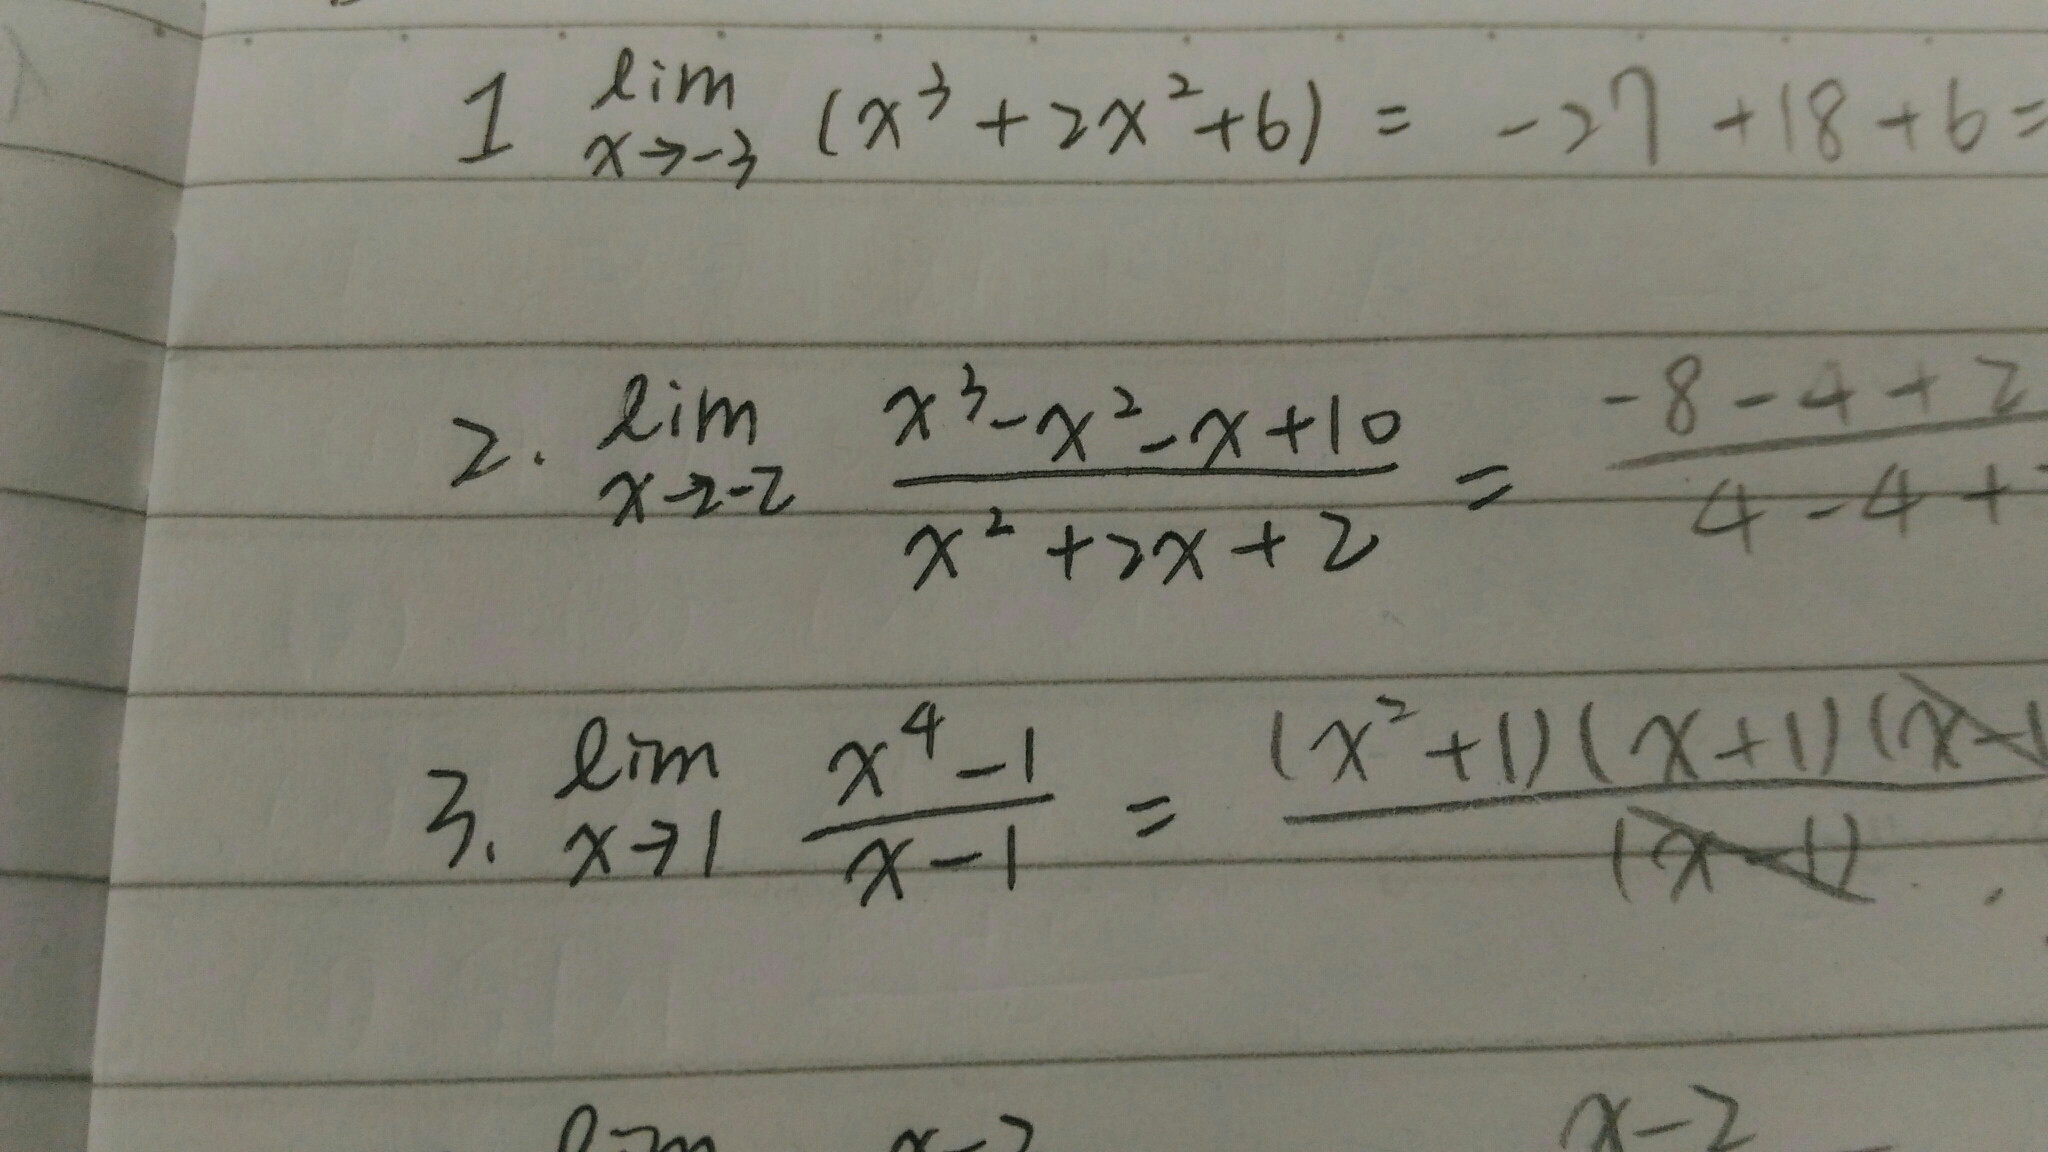 1 lim x→-3 (x³+2x²+6) = -27+18+6=
2. lim x→-2 (x³-x²-x+10)/(x²+2x+2) = (-8-4+2)/(4-4+
3. lim x→1 (x⁴-1)/(x-1) = (x²+1)(x+1)(x-1/(x-1)
lim x-2 x-2